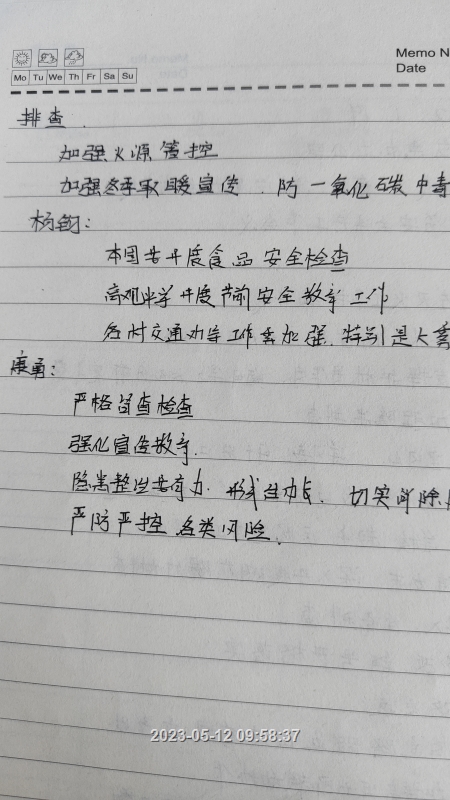 Memo N
Date
Mo Tu We Th Fr Sa Su
排查.
加强火源管控
加强冬季取暖宣传. 防一氧化碳中毒
杨钊:
本周要开展食品安全检查
高观中学开展节前安全教育工作
各村交通劝导工作要加强, 特别是大雾
康勇:
严格督查检查
强化宣传教育.
隐患整治要有力. 形成合力
切实消除
严防严控各类风险.
2023-05-12 09:58:37